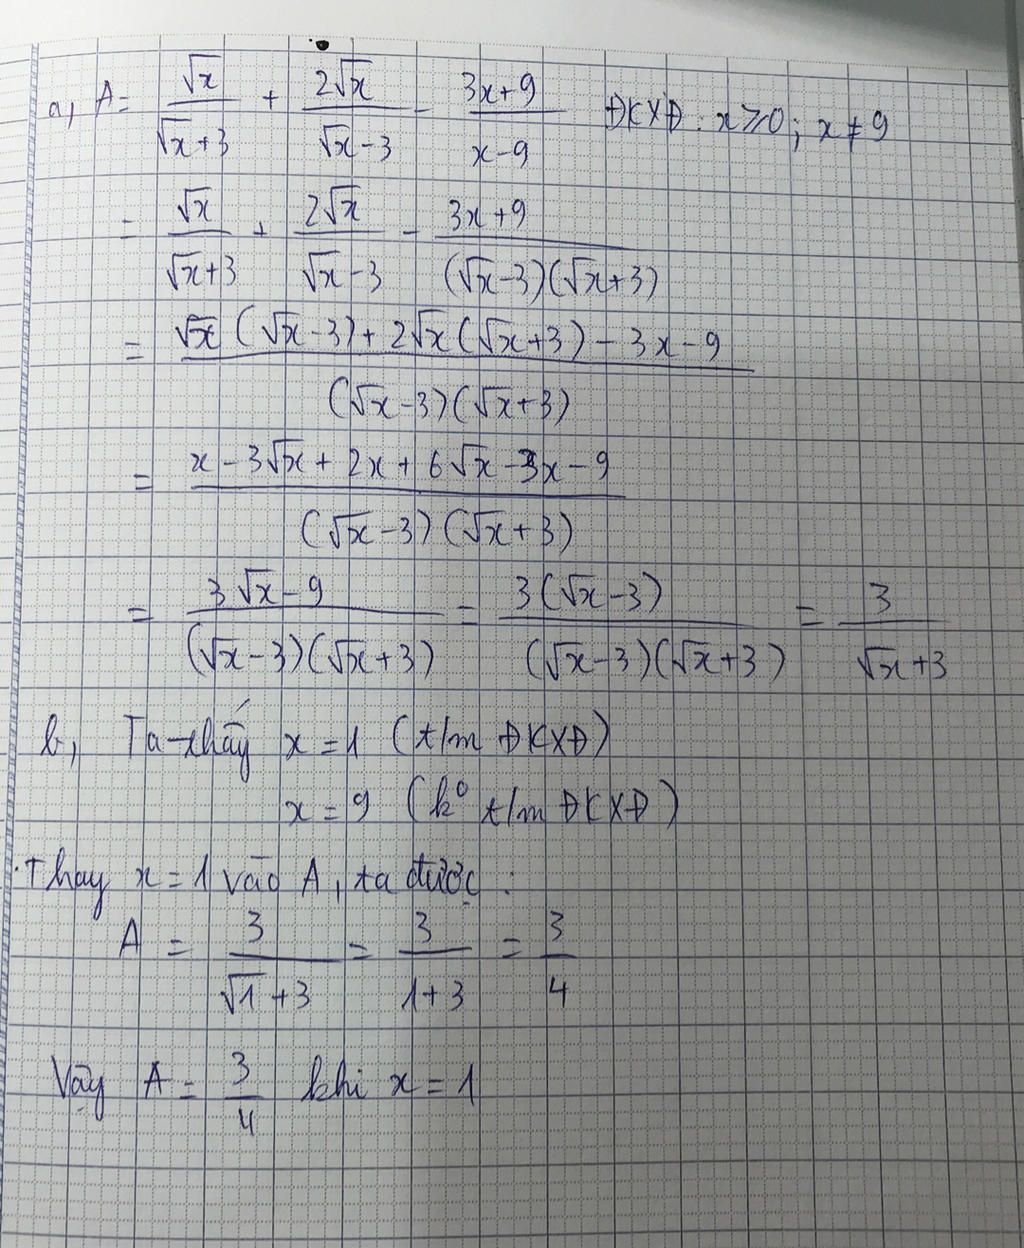 a, A = √x/(√x+3) + 2√x/(√x-3) - (3x+9)/(x-9) ĐKXĐ: x ≥ 0; x ≠ 9
= √x/(√x+3) + 2√x/(√x-3) - (3x+9)/((√x-3)(√x+3))
= (√x(√x-3)+2√x(√x+3)-3x-9)/((√x-3)(√x+3))
= (x-3√x+2x+6√x-3x-9)/((√x-3)(√x+3))
= (3√x-9)/((√x-3)(√x+3)) = 3(√x-3)/((√x-3)(√x+3)) = 3/(√x+3)
b, Ta thấy x = 1 (t/m ĐKXĐ)
x = 9 (k⁰ t/m ĐKXĐ)
Thay x = 1 vào A, ta được:
A = 3/(√1+3) = 3/(1+3) = 3/4
Vậy A = 3/4 khi x = 1